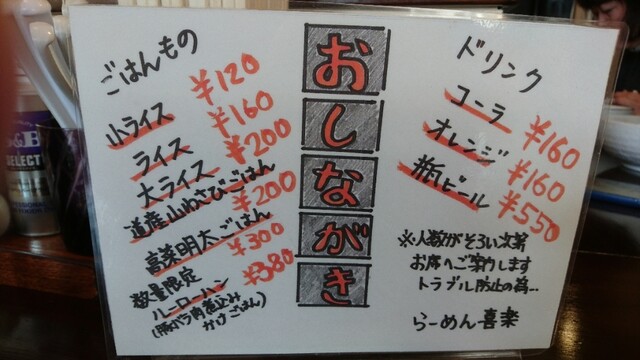 おしながき
ごはんもの
小ライス ¥120
ライス ¥160
大ライス ¥200
道産山わさびごはん ¥200
高菜明太ごはん ¥300
数量限定
ルーローハン ¥380
(豚バラ肉煮込み
かけごはん)
ドリンク
コーラ ¥160
オレンジ ¥160
瓶ビール ¥550
※人数がそろい次第
お席へご案内します
トラブル防止の為…
らーめん喜楽
S&B
SELECT